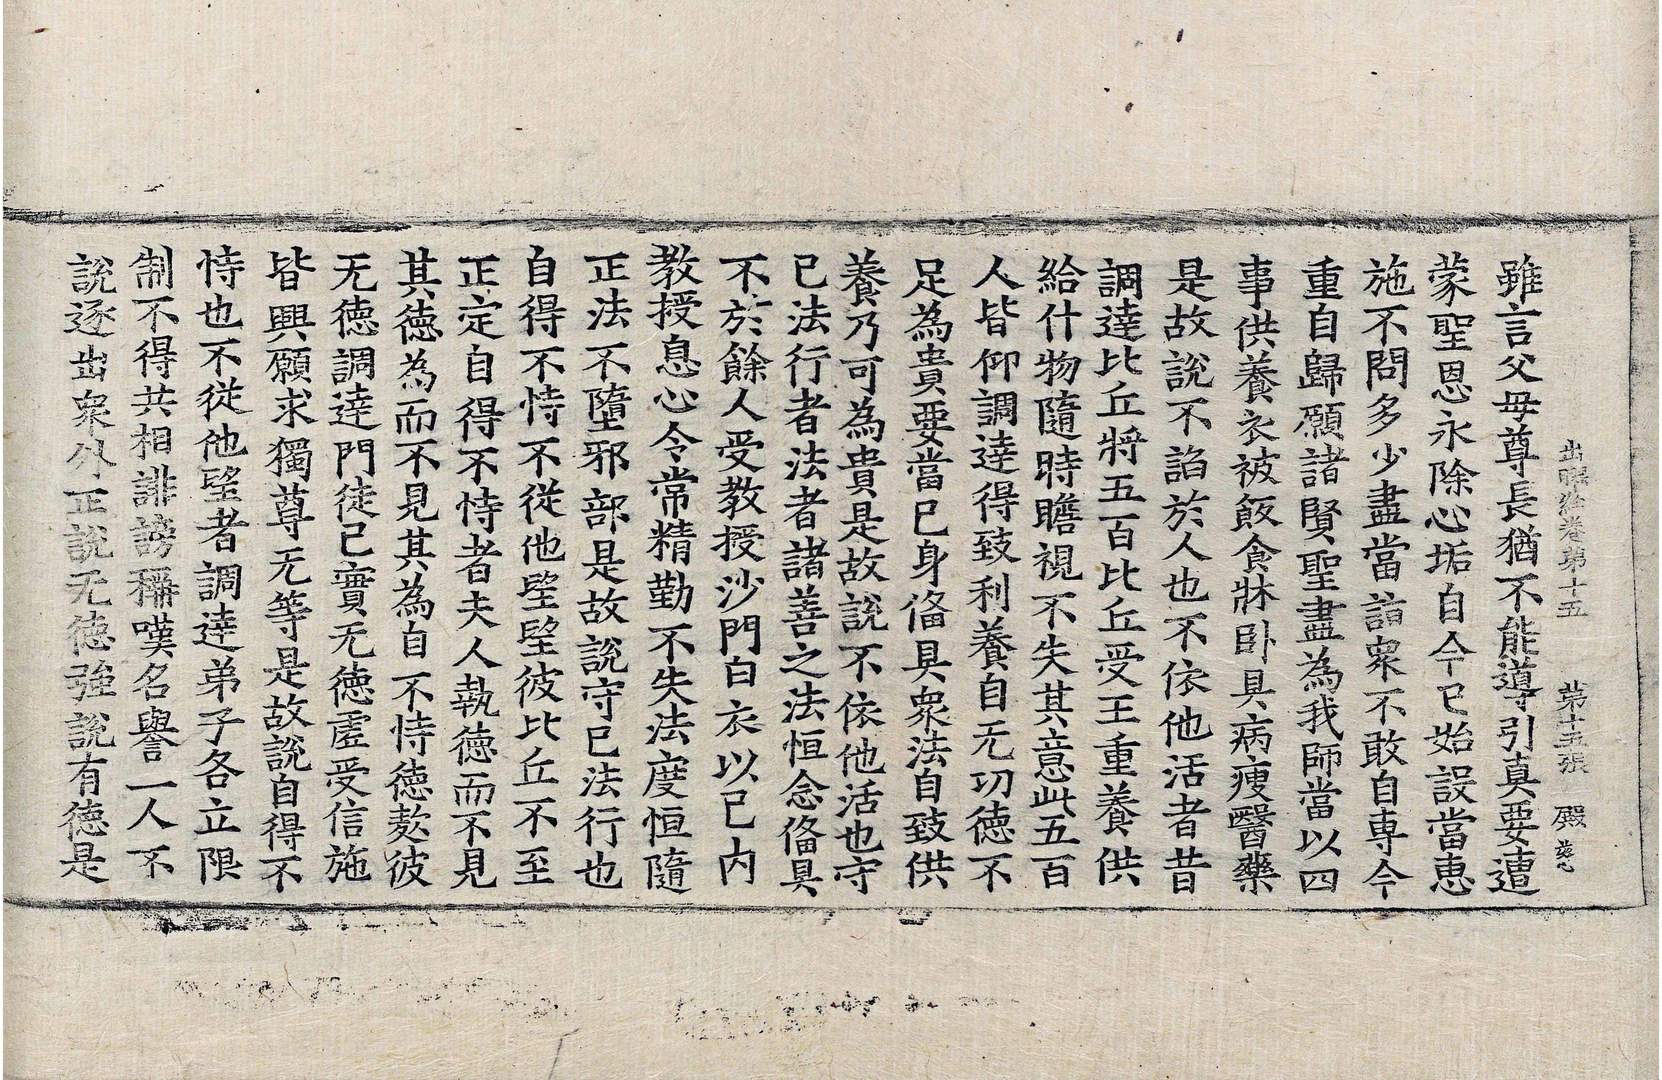 出曜經卷第十五 第十五張 殿
雖言父母尊長猶不能導引真要遭
蒙聖恩永除心垢自今已始設當惠
施不問多少盡當詣衆不敢自專今
重自歸願諸賢聖盡為我師當以四
事供養衣被飯食牀卧具病瘦醫藥
是故說不諂於人也不依他活者昔
調達比丘將五百比丘受王重養供
給什物隨時瞻視不失其意此五百
人皆仰調達得致利養自无功德不
足為貴要當已身俻具衆法自致供
養乃可為貴是故說不依他活也守
已法行者法者諸善之法恒念俻具
不於餘人受教授沙門白衣以已内
教授息心令常精勤不失法度恒隨
正法不墮邪部是故說守已法行也
自得不恃不從他望望彼比丘不至
正定自得不恃者夫人執德而不見
其德為而不見其為自不恃德欺彼
无德調達門徒已實无德虛受信施
皆興願求獨尊无等是故說自得不
恃也不從他望者調達弟子各立限
制不得共相誹謗稱嘆名譽一人不
說逐出衆外正說无德強說有德是